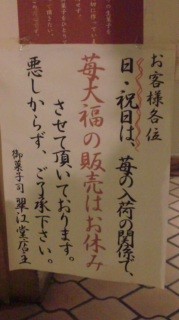 お客様各位
日・祝日は、苺の入荷の関係で、
苺大福の販売はお休み
させて頂いております。
悪しからず、ご了承下さい。
御菓子司 翠江堂店主